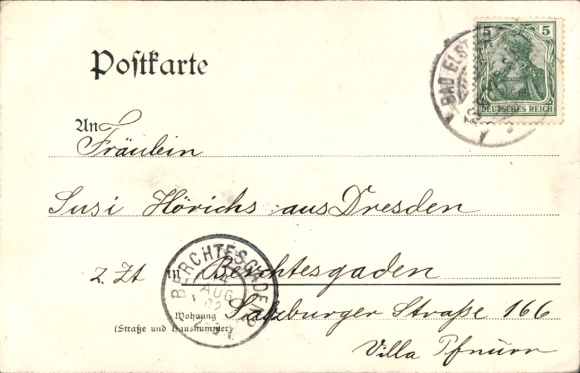 Postkarte
5 5
DEUTSCHES REICH
BAD ELST
An
Fräulein
Susi Hörichs aus Dresden
z. Zt in Berchtesgaden
BERCHTESGADEN
AUG
Wohnung
(Straße und Hausnummer)
Salzburger Straße 166
Villa Pfnürr